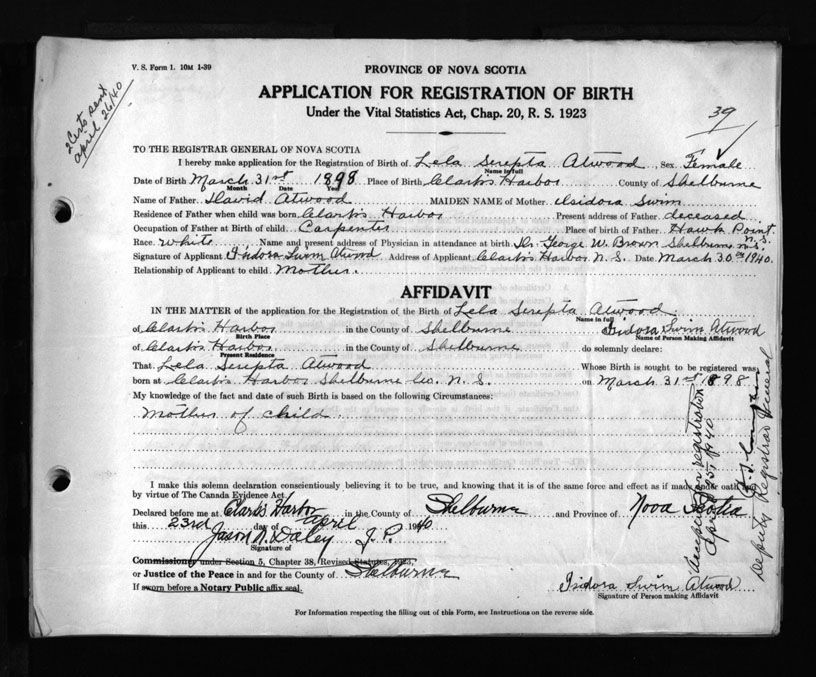 V. S. Form 1. 10M 1-39
2 Certs sent
april 26/40
PROVINCE OF NOVA SCOTIA
APPLICATION FOR REGISTRATION OF BIRTH
Under the Vital Statistics Act, Chap. 20, R. S. 1923
39
TO THE REGISTRAR GENERAL OF NOVA SCOTIA
I hereby make application for the Registration of Birth of Lela Serepta Atwood, Sex Female
Name in full
Date of Birth March 31st 1898 Place of Birth Clark's Harbor County of Shelburne
Month Date Year
Name of Father David Atwood MAIDEN NAME of Mother Isidora Swim
Residence of Father when child was born Clark's Harbor Present address of Father deceased
Occupation of Father at Birth of child Carpenter Place of birth of Father Hawk Point, N.S.
Race white Name and present address of Physician in attendance at birth Dr. George W. Brown Shelburne, N.S.
Signature of Applicant Isidora Swim Atwood Address of Applicant Clark's Harbor N. S. Date March 30th 1940.
Relationship of Applicant to child Mother.
AFFIDAVIT
IN THE MATTER of the application for the Registration of the Birth of Lela Serepta Atwood
Name in full
of Clark's Harbor in the County of Shelburne Isidora Swim Atwood
Birth Place Name of Person Making Affidavit
of Clark's Harbor in the County of Shelburne do solemnly declare:
Present Residence
That Lela Serepta Atwood Whose Birth is sought to be registered was
born at Clark's Harbor Shelburne Co. N. S. on March 31st 1898.
My knowledge of the fact and date of such Birth is based on the following Circumstances:
Mother of child.
I make this solemn declaration conscientiously believing it to be true, and knowing that it is of the same force and effect as if made under oath and
by virtue of The Canada Evidence Act.
Declared before me at Clark's Harbor in the County of Shelburne and Province of Nova Scotia
this 23rd day of April 1940
Jason N. Daley J. P.
Signature of
Commissioner under Section 5, Chapter 38, Revised Statutes, 1923,
or Justice of the Peace in and for the County of Shelburne
If sworn before a Notary Public affix seal.
Isidora Swim Atwood
Signature of Person making Affidavit
For Information respecting the filling out of this Form, see Instructions on the reverse side.
Accepted for registration
April 25, 1940
Deputy Registrar General